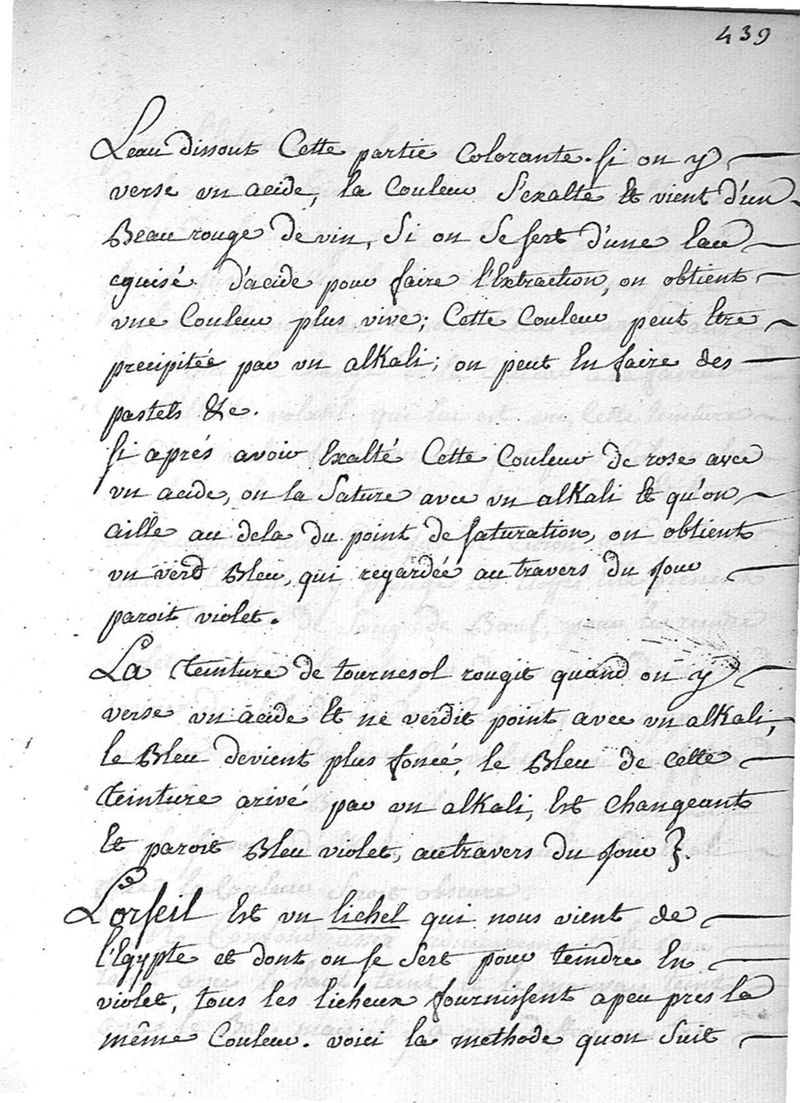 439
L'eau dissout Cette partie Colorante. si on y
verse un acide, la Couleur S'exalte et vient d'un
Beau rouge de vin, Si on Se sert d'une Eau
eguisé d'acide pour faire l'Extraction, on obtient
vne Couleur plus vive; Cette Couleur peut Etre
precipitée par un alkali; on peut En faire des
pastels &c.
si aprés avoir Exalté Cette Couleur de rose avec
un acide, on la Sature avec un alkali et qu'on
aille au dela du point de saturation, on obtient
un verd Bleu, qui regardée au travers du jour
paroit violet.
La teinture de tournesol rougit quand on y
verse un acide et ne verdit point avec un alkali,
le Bleu devient plus foncé, le Bleu de cette
teinture arivé par un alkali, Est changeant
Et paroit Bleu violet, au travers du jour }.
L'orseil Est un lichel qui nous vient de
l'Egypte et dont on se Sert pour teindre En
violet, tous les licheux fournissent a peu pres la
même Couleur. voici la methode qu'on Suit